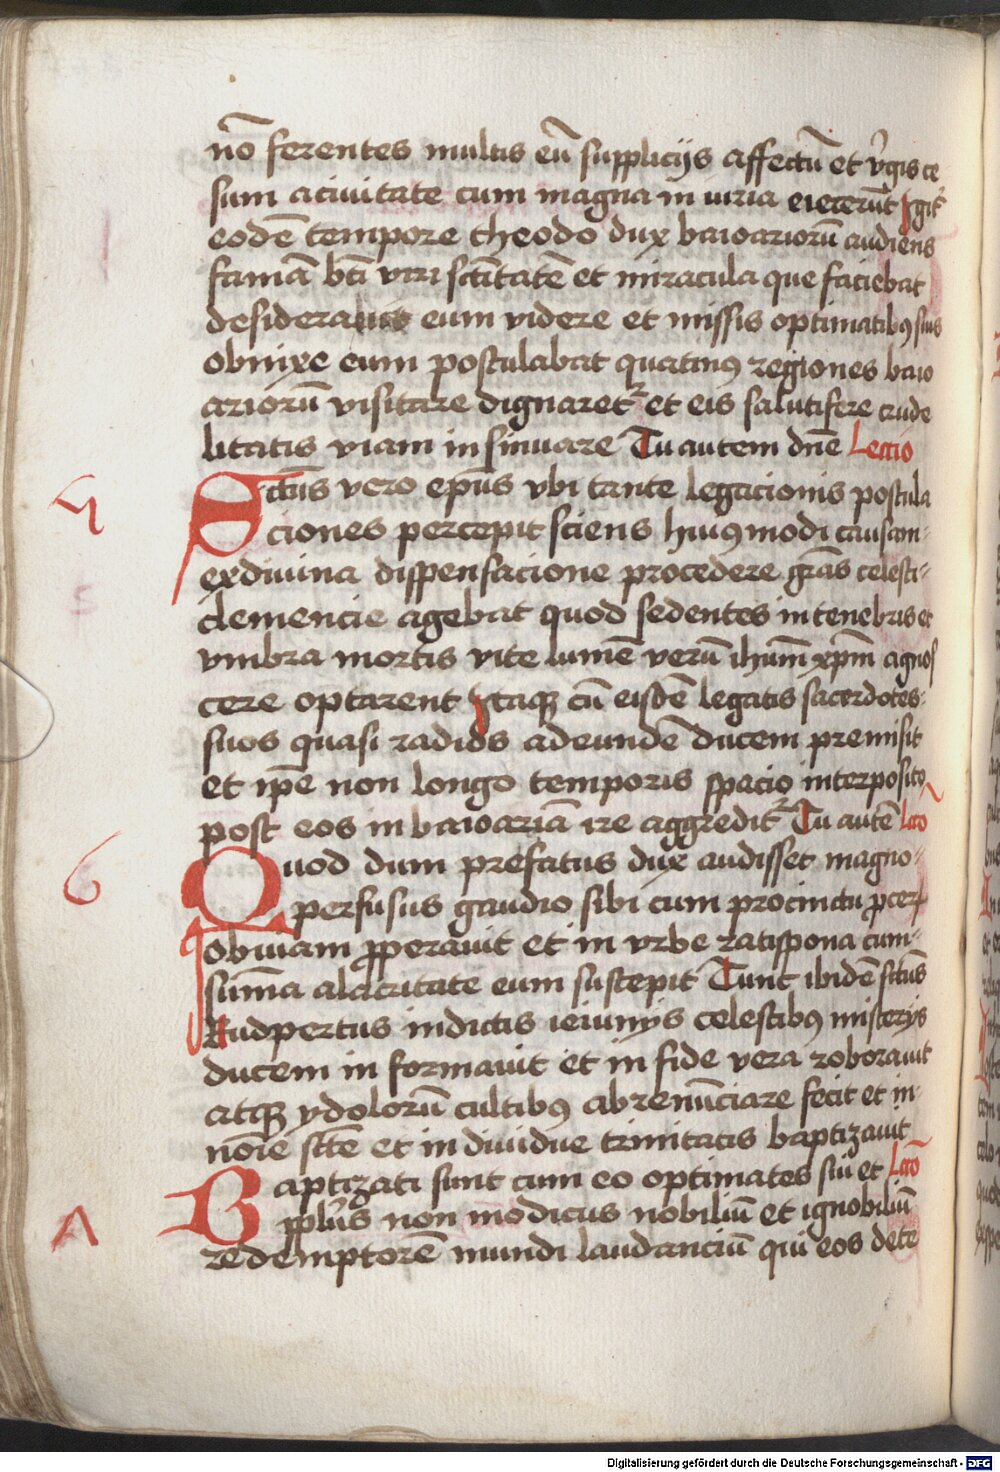 nō ferentes multis eū supplicijs affectū et v̓gis ce
sum aciuitate cum magna in iuria eiecerūt Igit᷑
eodē tempore theodo dux baioariorū audiens
famā bti viri sctitatē et miracula que faciebat
desidera eum videre et missis optimatibꝯ suis
obnixe eum postulabat quatinꝯ regiones baio
ariorū visitare dignaret᷑ et eis salutifere crude
litatis viam in sinuare Tu autem dnē Lectio
5 Sctūs vero ep̄us vbi tante legacionis postula
ciones percepit sciens huiꝯmodi causam
exdiuina dispensacione procedere gr̄as celesti
clemencie agebat quod sedentes in tenebris et
vmbra mortis vite lumē verū ihūm xp̄m agnos
cere optarent Itaqꝫ cū eisdē legatis sacerdotes
suos quasi radios adeundē ducem premisit
et ip̄e non longo temporis spacio interposito
post eos in baioariā ire aggredit᷑ Tu autē Lc̄o
6 Quod dum prefatus dux audisset magno
perfusus gaudio sibi cum procinctu ꝓcerꝝ
obuiam ꝓperauit et in vrbe ratispona cum
sum̄a alacritate eum suscepit Tunc ibidē sctūs
Rudpertus indictis ieiunijs celestibꝯ misterijs
ducem in formauit et in fide vera roborauit
atqꝫ ydolorū cultibꝯ abrenūciare fecit et in
nōie scte et in diuidue trinitatis baptizauit
Baptizati sunt cum eo optimates siu et Lc̄o
A pplūs non modicus nobiliū et ignobiliū
redemptorē mundi laudanciū qui eos dete
Digitalisierung gefördert durch die Deutsche Forschungsgemeinschaft - DFG